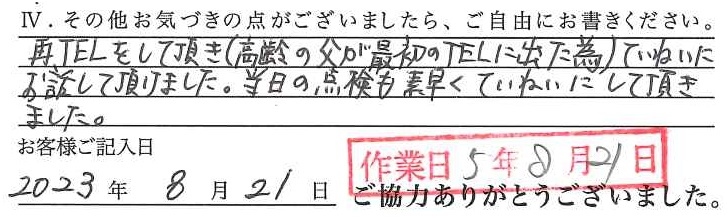 Ⅳ．その他お気づきの点がございましたら、ご自由にお書きください。
再TELをして頂き(高齢の父が最初のTELに出た為)ていねいに
お話して頂けました。当日の点検も素早くていねいにして頂き
ました。
お客様ご記入日
2023年 8月21日
作業日 5年8月21日
ご協力ありがとうございました。